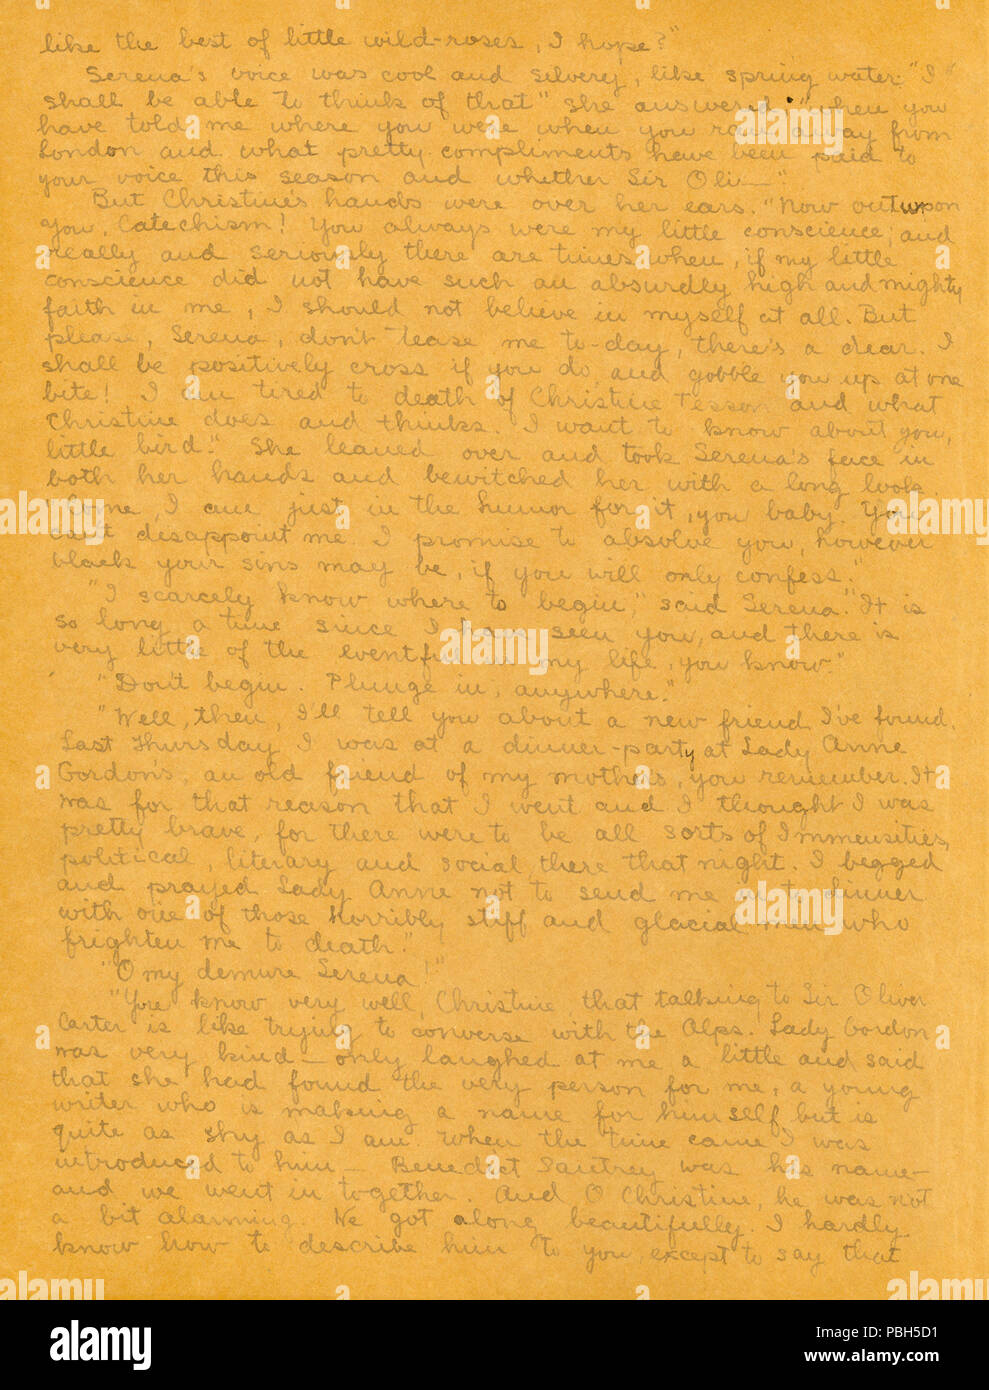 like the best of little wild-roses, I hope?"
Serena's voice was cool and silvery, like spring water. "I
shall be able to think of that" she answered, "when you
have told me where you were when you ran away from
London and what pretty compliments have been paid to
your voice this season and whether Sir Oli—"
But Christine's hands were over her ears. "Now out upon
you, Catechism! You always were my little conscience, and
really and seriously there are times when, if my little
conscience did not have such an absurdly high and mighty
faith in me, I should not believe in myself at all. But
please, Serena, don't tease me to-day, there's a dear. I
shall be positively cross if you do, and gobble you up at one
bite! I am tired to death of Christine Tesson and what
Christine does and thinks. I want to know about you,
little bird." She leaned over and took Serena's face in
both her hands and bewitched her with a long look.
"Come, I am just in the humor for it, you baby. You
can't disappoint me. I promise to absolve you, however
black your sins may be, if you will only confess."
"I scarcely know where to begin," said Serena. "It is
so long a time since I have seen you, and there is
very little of the eventful in my life, you know."
"Don't begin. Plunge in, anywhere."
"Well, then, I'll tell you about a new friend I've found.
Last Thursday I was at a dinner-party at Lady Anne
Gordon's, an old friend of my mother's, you remember. It
was for that reason that I went and I thought I was
pretty brave, for there were to be all sorts of Immensities,
political, literary and social, there that night. I begged
and prayed Lady Anne not to send me in to dinner
with one of those horribly stiff and glacial men who
frighten me to death."
"O my demure Serena!"
"You know very well, Christine, that talking to Sir Oliver
Carter is like trying to converse with the Alps. Lady Gordon
was very kind — only laughed at me a little and said
that she had found the very person for me, a young
writer who is making a name for himself but is
quite as shy as I am. When the time came I was
introduced to him — Benedict Sautrey was his name —
and we went in together. And, O Christine, he was not
a bit alarming. We got along beautifully. I hardly
know how to describe him to you, except to say that
alamy
Image ID: PBH5D1
www.alamy.com